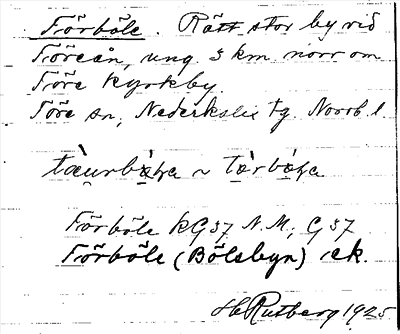 Töreböle. Rätt stor by vid
Töreån, ung. 3 km norr om
Töre kyrkby.
Töre sn, Nederkalix tg. Norrb. l.
Töreböle kG 37 N.M; G 37
Töreböle (Bölsbyn) ek.
H Rutberg 1925